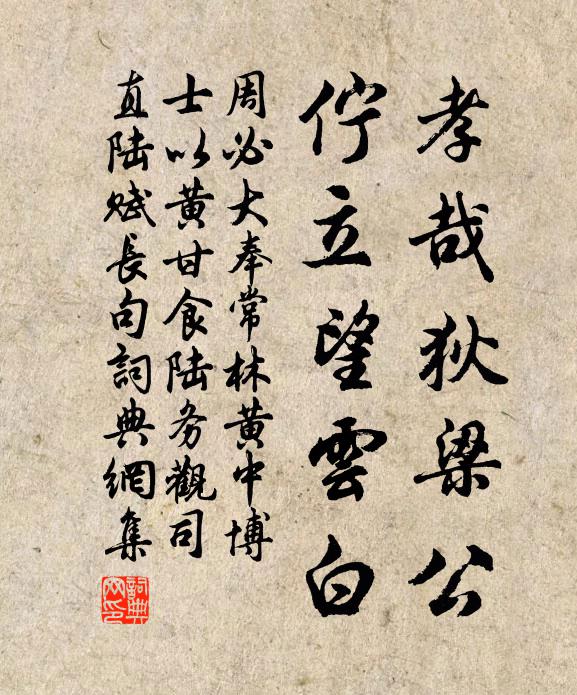 孝哉狄梁公
佇立望雲白
周必大奉常林黄中博
士以黄甘食陸务觀司
直陸赋長句詞典網集
詞典